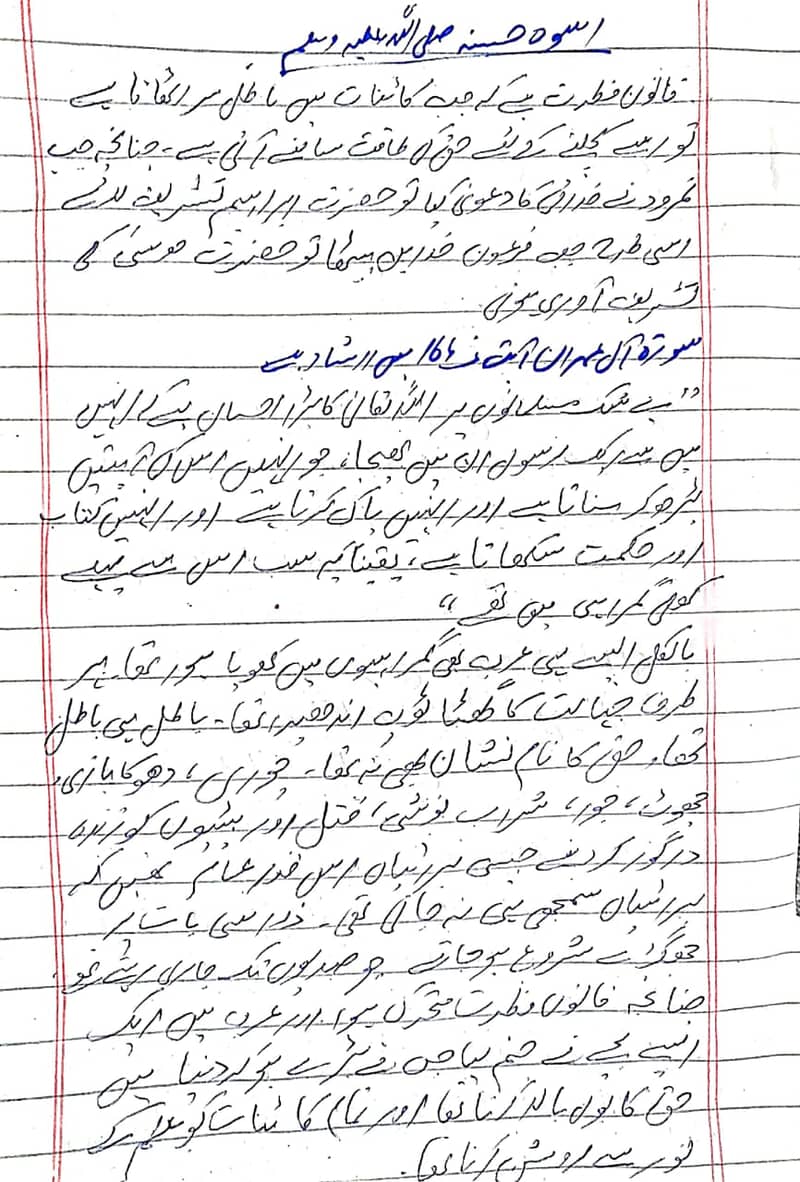 اسوہ حسنہ صلی اللہ علیہ وسلم
قانون فطرت ہے کہ جب کائنات میں باطل سر اٹھاتا ہے
تو اسے کچلنے کے لئے حق کی طاقت سامنے آتی ہے۔ چنانچہ جب
نمرود نے خدائی کا دعویٰ کیا تو حضرت ابراہیم تشریف لائے
اسی طرح جب فرعون خدا بن بیٹھا تو حضرت موسیٰ کی
تشریف آوری ہوئی
سورۃ آل عمران آیت نمبر 164 میں ارشاد ہے
"بے شک مسلمانوں پر اللہ تعالیٰ کا بڑا احسان ہے کہ انہیں
میں سے ایک رسول ان میں بھیجا، جو انہیں اس کی آیتیں
پڑھ کر سناتا ہے اور انہیں پاک کرتا ہے اور انہیں کتاب
اور حکمت سکھاتا ہے، یقیناً یہ سب اس سے پہلے
کھلی گمراہی میں تھے"
بالکل ایسے ہی عرب بھی گمراہیوں میں کھویا ہوا تھا۔ ہر
طرف جہالت کا گھٹا ٹوپ اندھیرا تھا۔ باطل ہی باطل
تھا۔ حق کا نام نشان بھی نہ تھا۔ چوری، دھوکا بازی،
جھوٹ، جوا، شراب نوشی، قتل اور بیٹیوں کو زندہ
درگور کر دینے جیسی برائیاں اس قدر عام تھیں کہ
برائیاں سمجھی ہی نہ جاتی تھی۔ ذرا سی بات پر
جھگڑے شروع ہو جاتے جو صدیوں تک جاری رہتے تھے
چنانچہ قانون فطرت متحرک ہوا اور عرب میں ایک
ایسے بچے نے جنم لیا جس نے بڑے ہو کر دنیا میں
حق کا بول بالا کرنا تھا اور تمام کائنات کو اسلام کے
نور سے روشن کرنا تھا۔